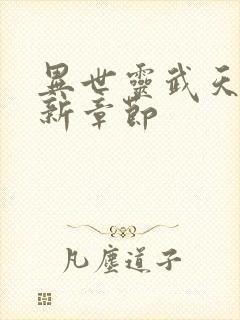 異世靈武天
新章節
凡塵道子